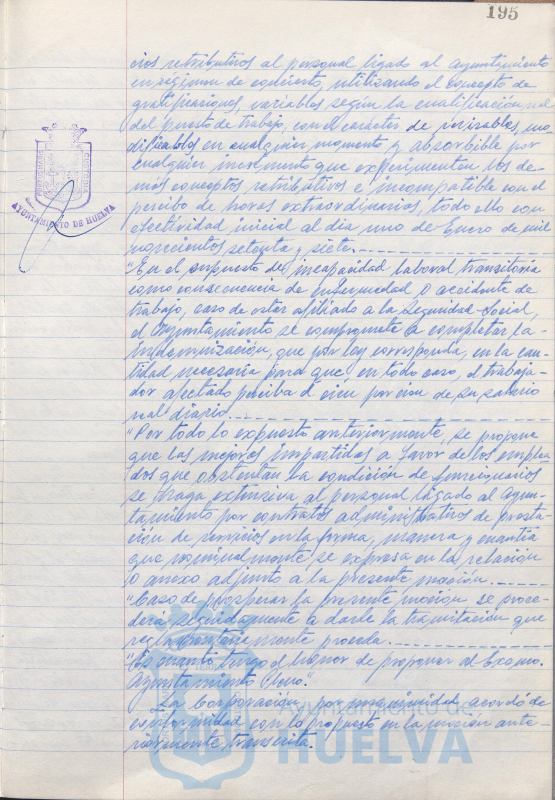 195
cios retributivos al personal ligado al Ayuntamiento
en régimen de concierto, utilizando el concepto de
gratificaciones, variables según la cualificación real
del puesto de trabajo, con el carácter de revisables, mo
dificables en cualquier momento y absorbible por
cualquier incremento que experimenten los de-
más conceptos retributivos e incompatible con el
percibo de horas extraordinarias, todo ello con
efectividad inicial al día uno de Enero de mil
novecientos setenta y siete.
"En el supuesto de incapacidad laboral transitoria
como consecuencia de enfermedad o accidente de
trabajo, caso de estar afiliado a la Seguridad Social,
el Ayuntamiento se compromete a completar la
indemnización, que por ley corresponda, en la can-
tidad necesaria para que en todo caso, el trabaja-
dor afectado perciba el cien por cien de su salario
real diario.
"Por todo lo expuesto anteriormente, se propone
que las mejoras impartidas a favor de los emplea
dos que obstentan la condición de funcionarios
se haga extensiva al personal ligado al Ayun-
tamiento por contratos administrativos de presta-
ción de servicios en la forma, manera y cuantía
que nominalmente se expresa en la relación
o anexo adjunto a la presente moción.
"Caso de prosperar la presente moción se proce-
derá seguidamente a darle la tramitación que
reglamentariamente proceda.
"Es cuanto tengo el honor de proponer al Excmo.
Ayuntamiento Pleno."
La Corporación por unanimidad acordó de
conformidad con lo propuesto en la moción ante-
riormente transcrita.
AYUNTAMIENTO DE HUELVA
Ayuntamiento de
HUELVA